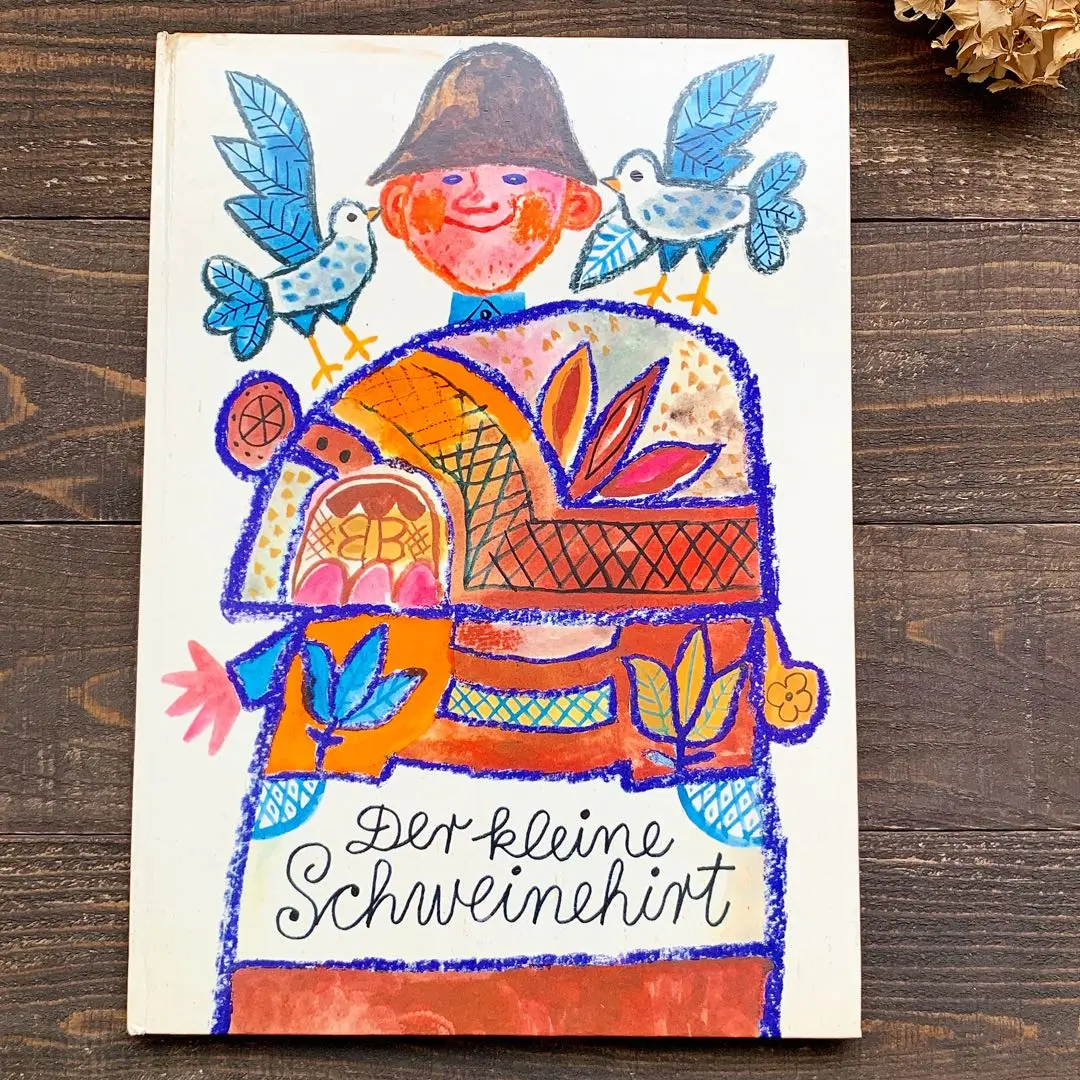 BB
Der kleine
Schweinehirt